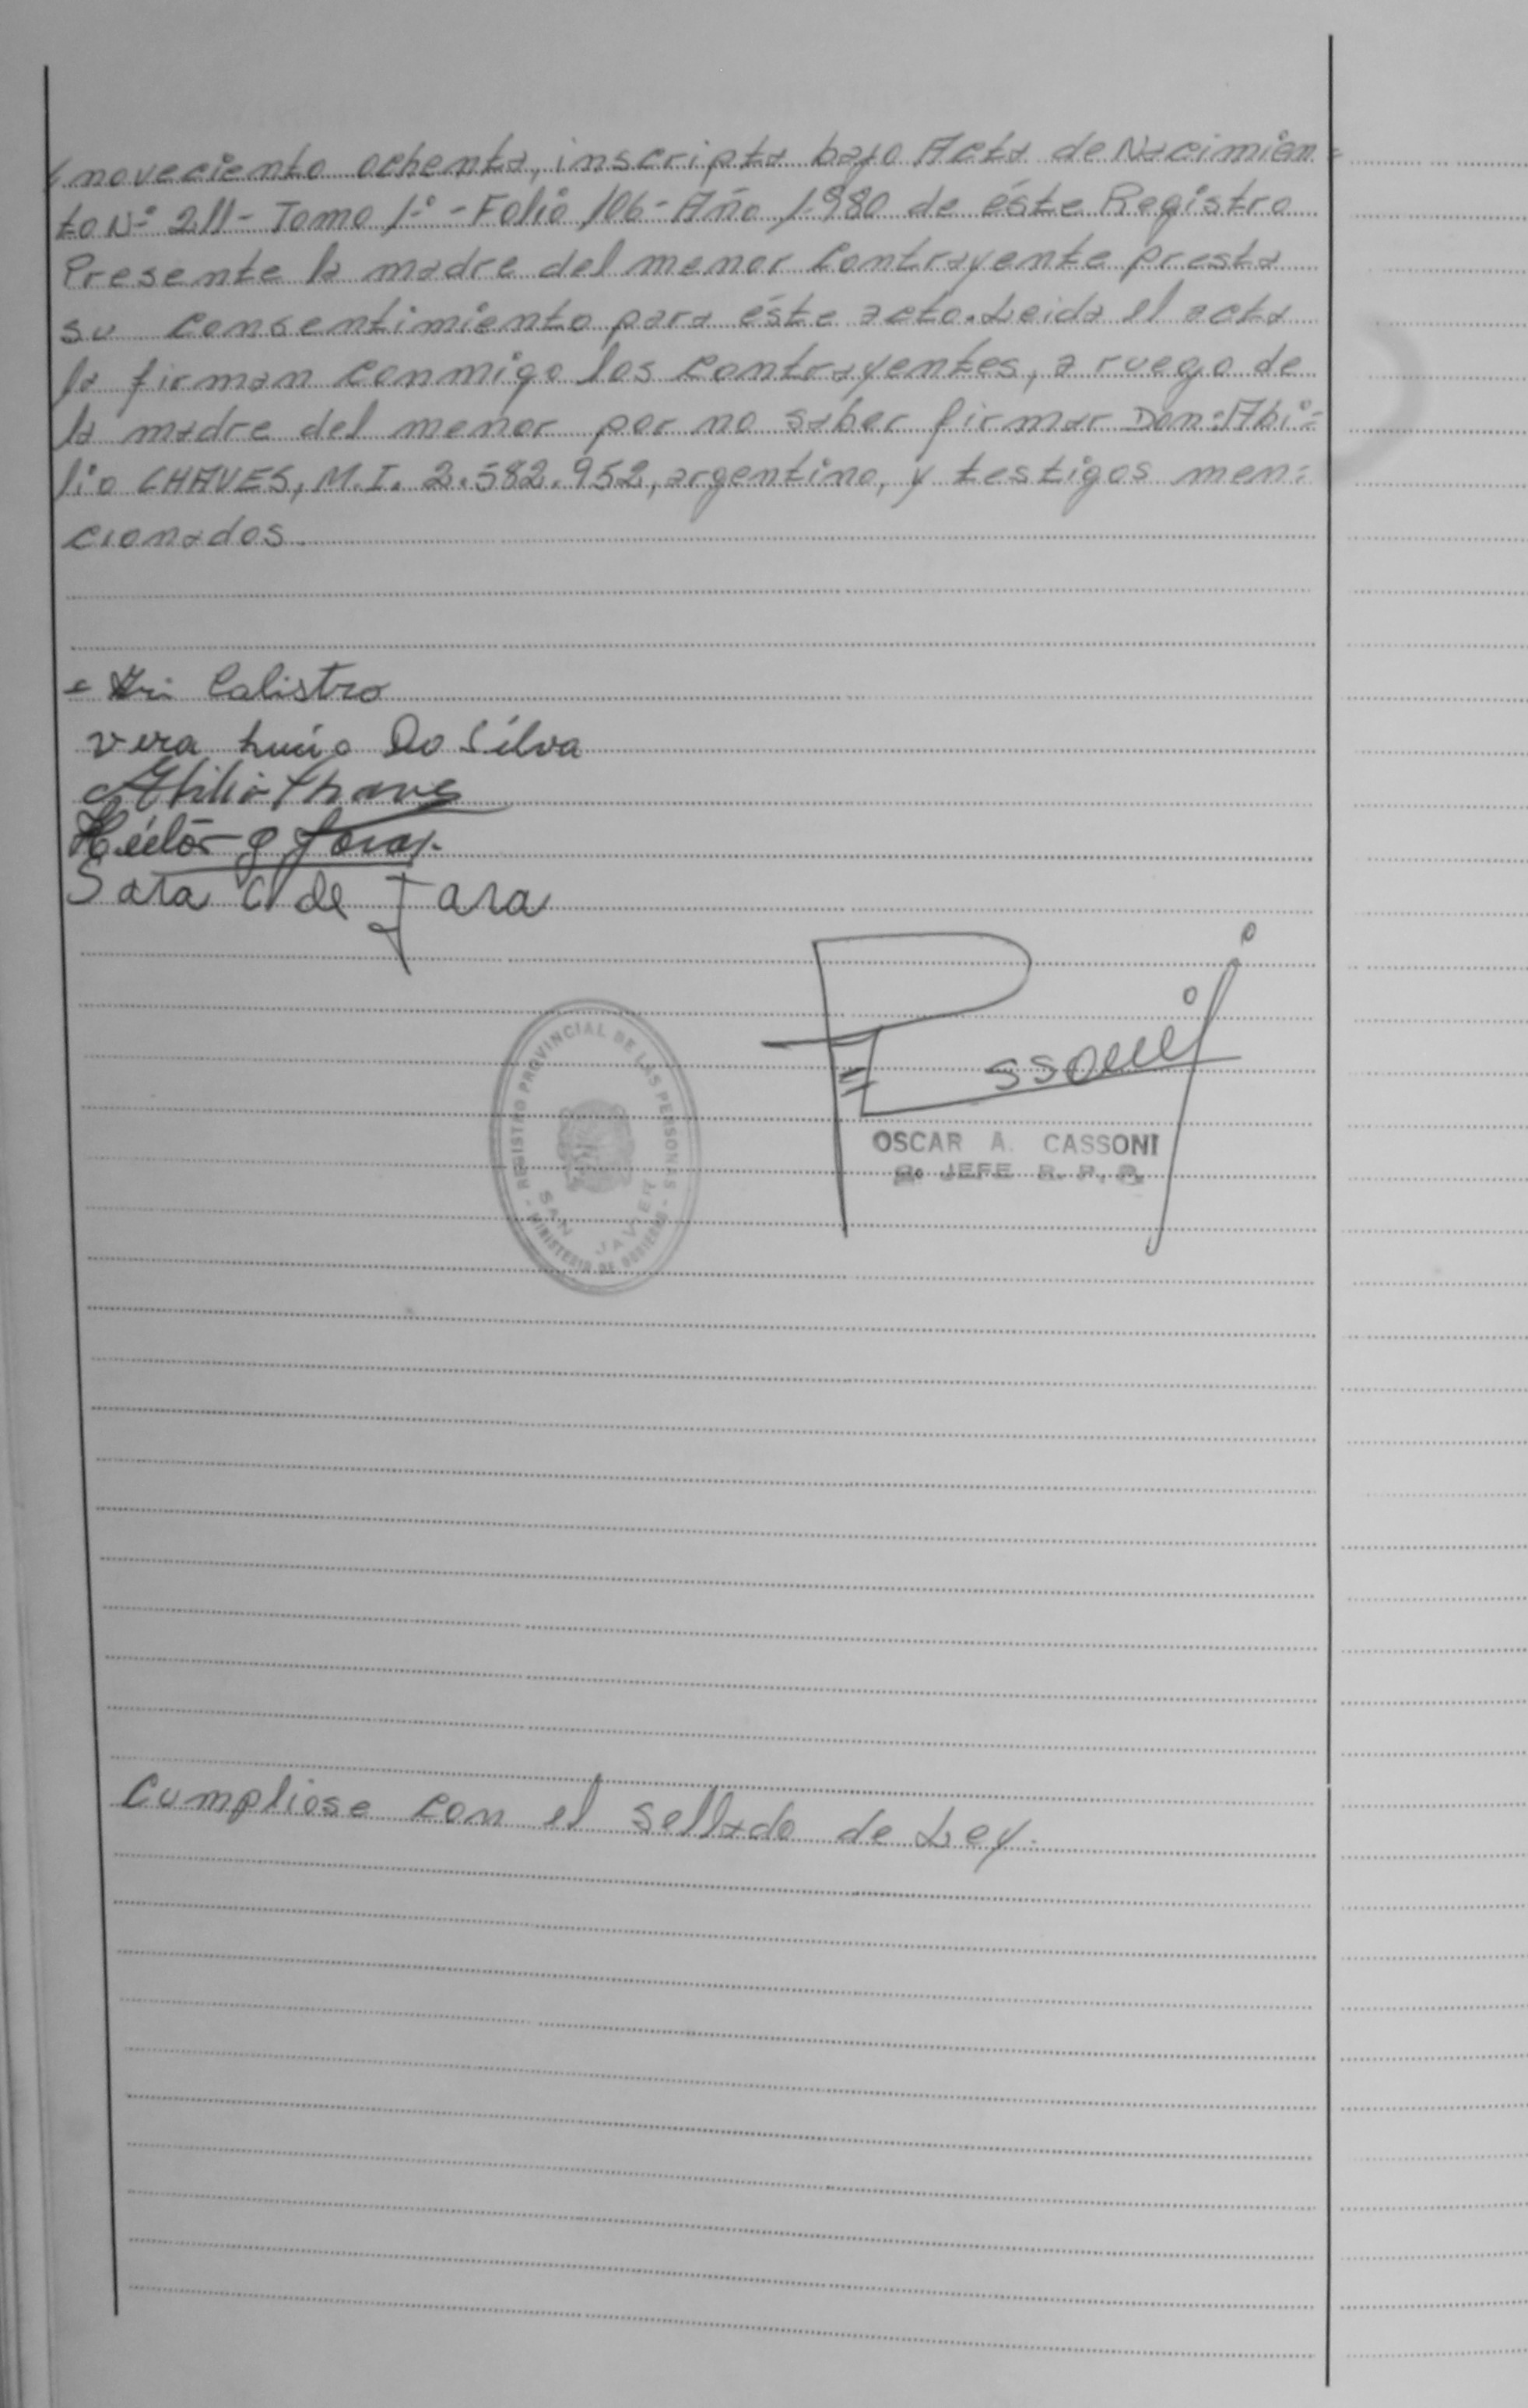 noveciento ochenta, inscripta bajo Acta de Nacimien=
to Nº 211- Tomo 1º - Folio 106- Año 1.980 de éste Registro
Presente la madre del menor contrayente presta
su consentimiento para éste acto. Leida el acta
la firman conmigo los contrayentes, a ruego de
la madre del menor por no saber firmar Don: Abi=
lio CHAVES, M.I. 2.582.952, argentino, y testigos men=
cionados.
Calistro
vera lucia Da Silva
Abilio Chaves
Héctor
Sara C de Jara
REGISTRO PROVINCIAL DE LAS PERSONAS
SAN JAVIER
- MINISTERIO DE GOBIERNO -
OSCAR A. CASSONI
JEFE R. P.
Cumpliose con el sellado de Ley.